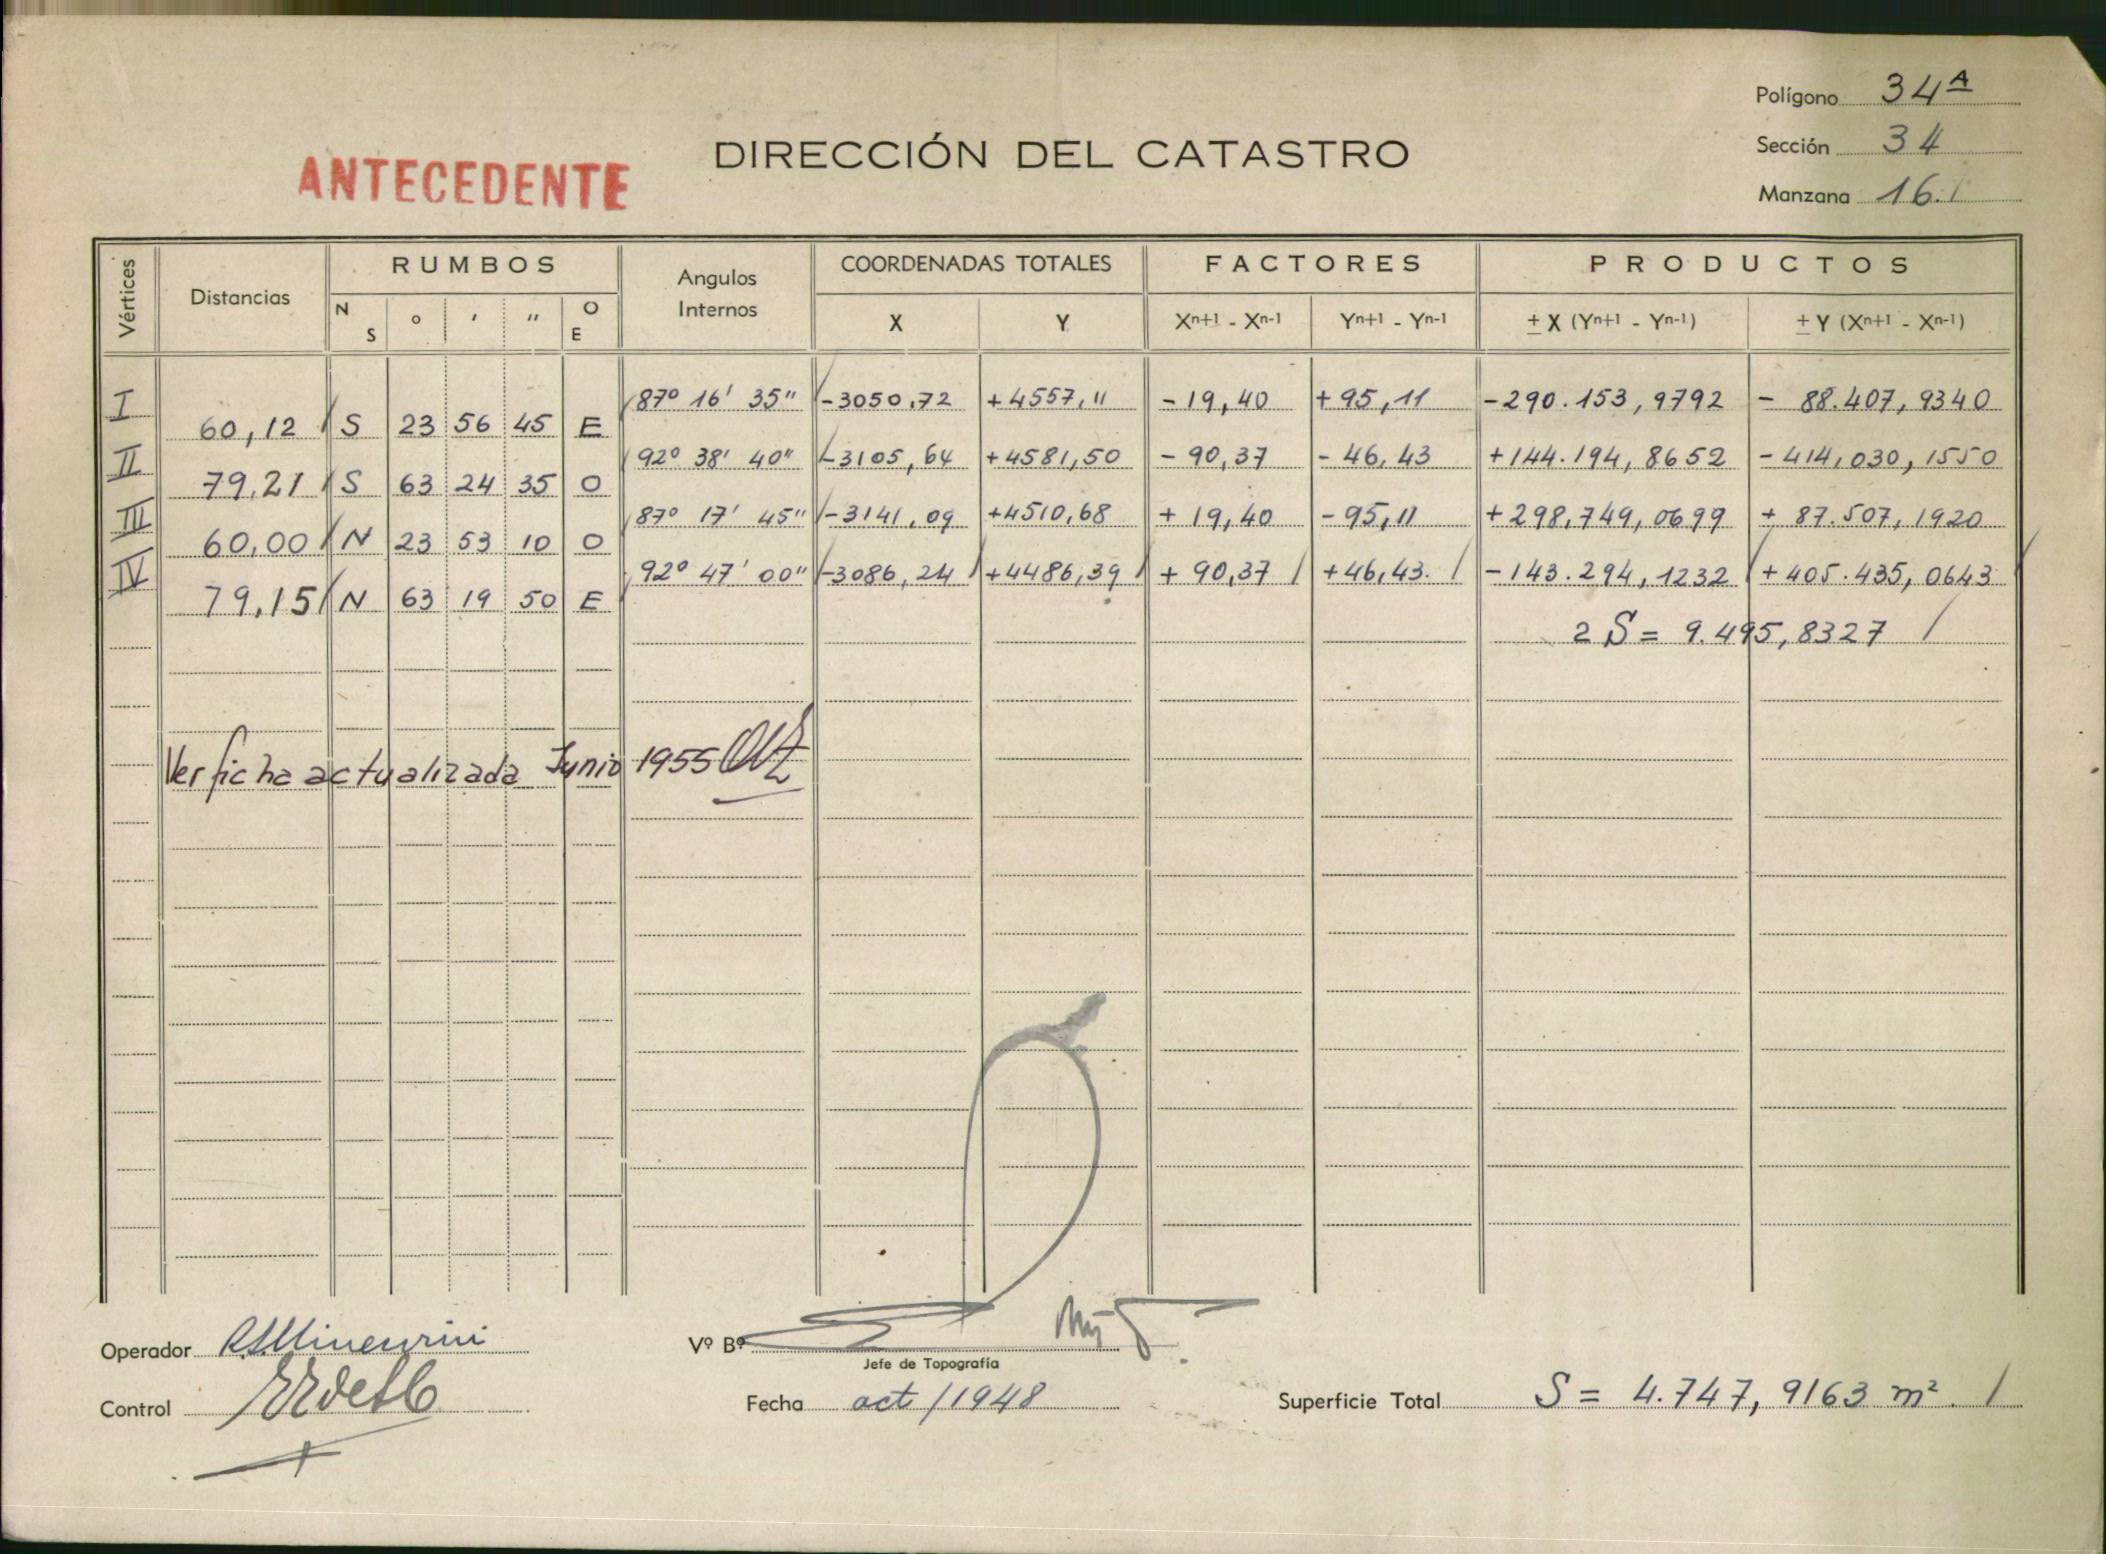 Polígono 34A
DIRECCIÓN DEL CATASTRO
Sección 34
ANTECEDENTE
Manzana 16.1
Vértices Distancias RUMBOS Angulos Internos COORDENADAS TOTALES FACTORES PRODUCTOS
N S ° ' " O E X Y Xn+1 - Xn-1 Yn+1 - Yn-1 ± X (Yn+1 - Yn-1) ± Y (Xn+1 - Xn-1)
I 87° 16' 35" -3050,72 +4557,11 -19,40 +95,11 -290.153,9792 - 88.407,9340
60,12 S 23 56 45 E
II 92° 38' 40" -3105,64 +4581,50 -90,37 -46,43 +144.194,8652 -414,030,1550
79,21 S 63 24 35 O
III 87° 17' 45" -3141,09 +4510,68 +19,40 -95,11 +298,749,0699 + 87.507,1920
60,00 N 23 53 10 O
IV 92° 47' 00" -3086,24 +4486,39 +90,37 +46,43. -143.294,1232 +405.435,0643
79,15 N 63 19 50 E
2 S = 9.495,8327
Ver ficha actualizada Junio 1955
Operador
Vº Bº
Jefe de Topografía
Control
Fecha oct/1948
Superficie Total S = 4.747,9163 m².